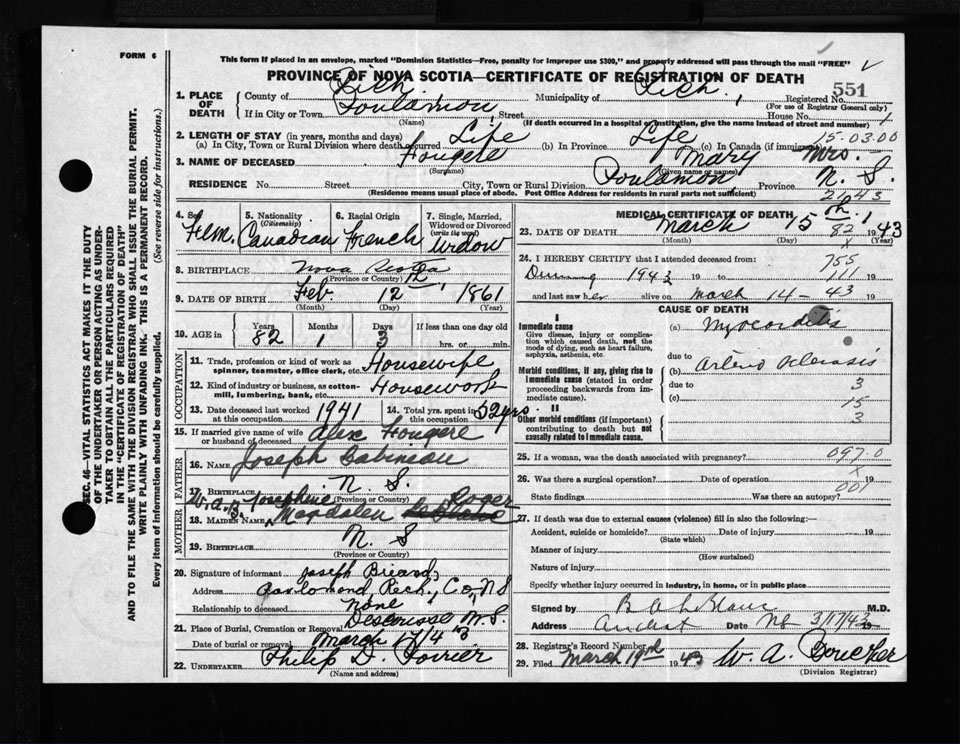 FORM 6
This form if placed in an envelope, marked "Dominion Statistics—Free, penalty for improper use $300," and properly addressed will pass through the mail "FREE"
PROVINCE OF NOVA SCOTIA—CERTIFICATE OF REGISTRATION OF DEATH
551
1. PLACE OF DEATH
County of Rich. Municipality of Rich. Registered No.
(For use of Registrar General only)
If in City or Town Poulamon, Street House No.
(Name) (If death occurred in a hospital or institution, give the name instead of street and number)
2. LENGTH OF STAY (in years, months and days) 15-03.00
(a) In City, Town or Rural Division where death occurred Life (b) In Province Life (c) In Canada (if immigrant)
3. NAME OF DECEASED Fougere Mary Mrs.
(Surname) (Given name or names)
RESIDENCE No. Street City, Town or Rural Division Poulamon, Province N. S.
(Residence means usual place of abode. Post Office Address for residents in rural parts not sufficient)
2043
4. Sex Fem.
5. Nationality (Citizenship) Canadian
6. Racial Origin French
7. Single, Married, Widowed or Divorced (write the word) Widow
8. BIRTHPLACE Nova Scotia
(Province or Country)
9. DATE OF BIRTH Feb. 12 1861
(Month) (Day) (Year)
10. AGE in Years Months Days If less than one day old
82 1 3 hrs. or min.
OCCUPATION
11. Trade, profession or kind of work as spinner, teamster, office clerk, etc. Housewife
12. Kind of industry or business, as cotton-mill, lumbering, bank, etc. Housework
13. Date deceased last worked at this occupation 1941
14. Total yrs. spent in this occupation 52 yrs.
15. If married give name of wife or husband of deceased Alex Fougere
FATHER
16. NAME Joseph Babineau
17. BIRTHPLACE N. S.
(Province or Country)
W.A.B. Josephine Roger
MOTHER
18. MAIDEN NAME Magdalen
19. BIRTHPLACE N. S
(Province or Country)
20. Signature of informant Joseph Briand
Address Rich., Co, N S
Relationship to deceased None
21. Place of Burial, Cremation or Removal Descousse N. S.
Date of burial or removal March 17/43
22. UNDERTAKER Philip D. Poirier
(Name and address)
MEDICAL CERTIFICATE OF DEATH
23. DATE OF DEATH March 15th 1943
(Month) (Day) (Year)
82
x
24. I HEREBY CERTIFY that I attended deceased from:
755
During 1943 to 111 19
and last saw her alive on March 14 - 43 19
CAUSE OF DEATH
I
Immediate cause
Give disease, injury or complication which caused death, not the mode of dying, such as heart failure, asphyxia, asthenia, etc.
(a) Myocarditis
due to
Morbid conditions, if any, giving rise to immediate cause (stated in order proceeding backwards from immediate cause).
(b) Arterio sclerosis
due to 3
(c) 15
3
II
Other morbid conditions (if important) contributing to death but not causally related to immediate cause.
25. If a woman, was the death associated with pregnancy? 097.0
26. Was there a surgical operation? Date of operation x 19
001
State findings Was there an autopsy?
27. If death was due to external causes (violence) fill in also the following:—
Accident, suicide or homicide? Date of injury 19
(State which)
Manner of injury
(How sustained)
Nature of injury
Specify whether injury occurred in industry, in home, or in public place
Signed by B A LeBlanc M.D.
Address Arichat Date NS 3/17/43 19
28. Registrar's Record Number
29. Filed March 19th 1943 W. A. Boucher
(Division Registrar)
SEC. 46—VITAL STATISTICS ACT MAKES IT THE DUTY
OF THE UNDERTAKER OR PERSON ACTING AS UNDER-
TAKER TO OBTAIN ALL THE PARTICULARS REQUIRED
IN THE "CERTIFICATE OF REGISTRATION OF DEATH"
AND TO FILE THE SAME WITH THE DIVISION REGISTRAR WHO SHALL ISSUE THE BURIAL PERMIT.
WRITE PLAINLY WITH UNFADING INK. THIS IS A PERMANENT RECORD.
Every item of Information should be carefully supplied. (See reverse side for instructions.)